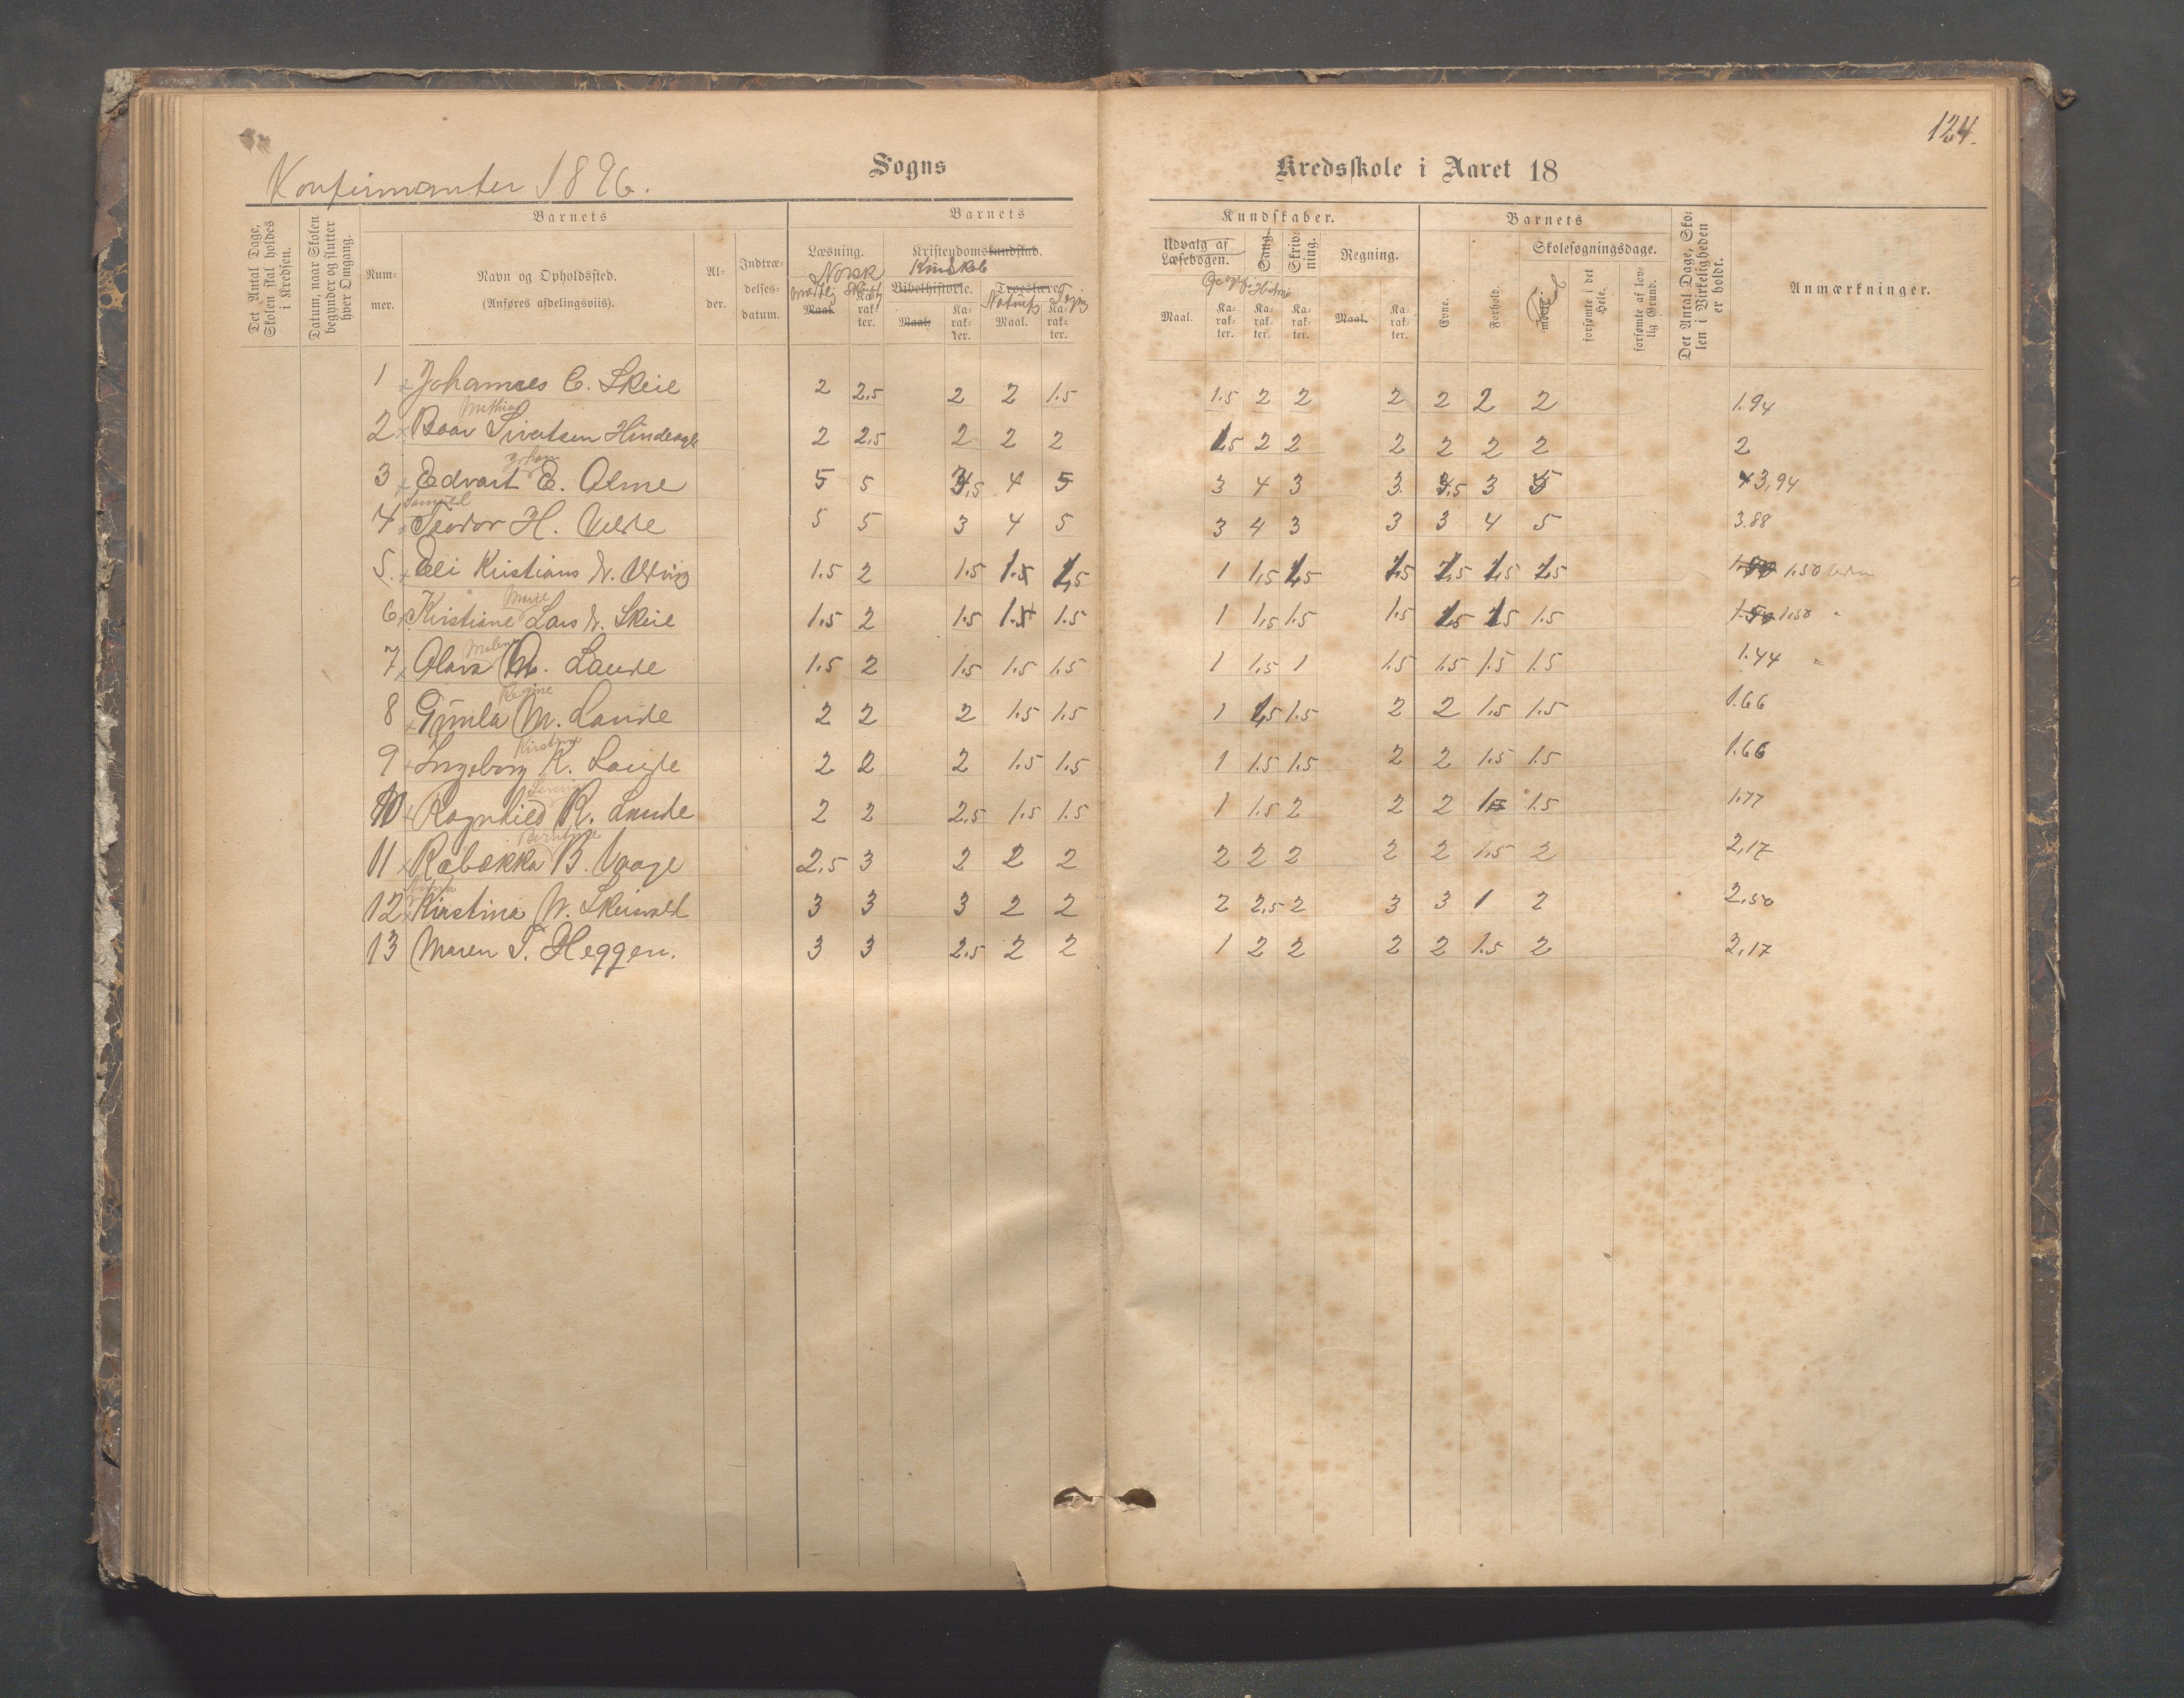 124.
Konfirmanter 1896.
Sogns Kredsskole i Aaret 18
Det Antal Dage, Skolen skal holdes i Kredsen.
Datum, naar Skolen begynder og slutter hver Omgang.
Barnets
Num-mer.
Navn og Opholdssted.
(Anføres afdelingsviis).
Al-der.
Indtræ-delses-datum.
Barnets
Læsning.
Norsk
Maal.
Ka-rak-ter.
Kristendomskundskab.
Kundskab
Bibelhistorie.
Maal.
Ka-rak-ter.
Troeslære.
Maal.
Ka-rak-ter.
Kundskaber.
Udvalg af Læsebogen.
Maal.
Ka-rak-ter.
Sang.
Historie
Ka-rak-ter.
Skriv-ning.
Ka-rak-ter.
Regning.
Maal.
Ka-rak-ter.
Barnets
Evne.
Forhold.
Skolesøgningsdage.
mødte.
forsømte i det Hele.
forsømte af lov-lig Grund.
Det Antal Dage, Sko-len i Virkeligheden er holdt.
Anmærkninger.
1 Johannes C. Skeie 2 2,5 2 2 1.5 1.5 2 2 2 2 2 2 1.94
Mathias
2 Baar Sivertsen 2 2,5 2 2 2 1,5 2 2 2 2 2 2 2
Johan
3 Edvart E. Olme 5 5 3,5 4 5 3 4 3 3 3,5 3 5 3,94
Samuel
4 Teodor H. Velde 5 5 3 4 5 3 4 3 3 3 4 5 3.88
5. Eli Kristians d. 1.5 2 1.5 1.5 1,5 1 1,5 1,5 1,5 1,5 1,5 1,5 1.50 1.50
Marie
6 Kirstiane Lars d. Skeie 1.5 2 1.5 1.5 1.5 1 1,5 1.5 1.5 1,5 1,5 1.5 1.50 1.50 "
7 Olava M. Laude 1.5 2 1.5 1.5 1.5 1 1.5 1 1.5 1.5 1.5 1.5 1.44 "
Regine
8 Gunla M. Laude 2 2 2 1.5 1.5 1 1,5 1.5 2 2 1.5 1.5 1.66
Kirstine
9 Ingeborg K. Laude 2 2 2 1.5 1.5 1 1.5 1.5 2 2 1.5 1.5 1.66
10 Ragnhild R. Laude 2 2 2.5 1.5 1.5 1 1.5 2 2 2 1.5 1.5 1.77
Berntine
11 Rabekka B. Vaage 2,5 3 2 2 2 2 2 2 2 2 1.5 2 2,17
Anna
12 Kirstina N. Skeisvold 3 3 3 2 2 2 2,5 2 3 3 1 2 2,50
13 Maren T. Heggen. 3 3 2.5 2 2 1 2 2 2 2 1.5 2 2,17